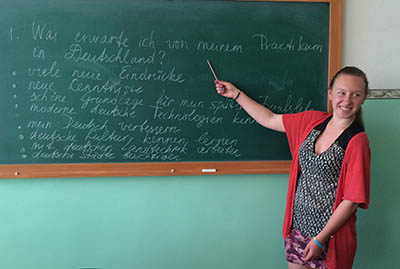 1. Was erwarte ich von meinem Practikum
in Deutschland?
• viele neue Eindrücke
• neue Kenntnisse
• schöne Grundlage für mein
• moderne deutsche Technologien
• mein Deutsch verbessern
• deutsche Kultur kennen lernen
• mit deutschen Landtechnik arbeiten
• deutsche Städte besichtigen